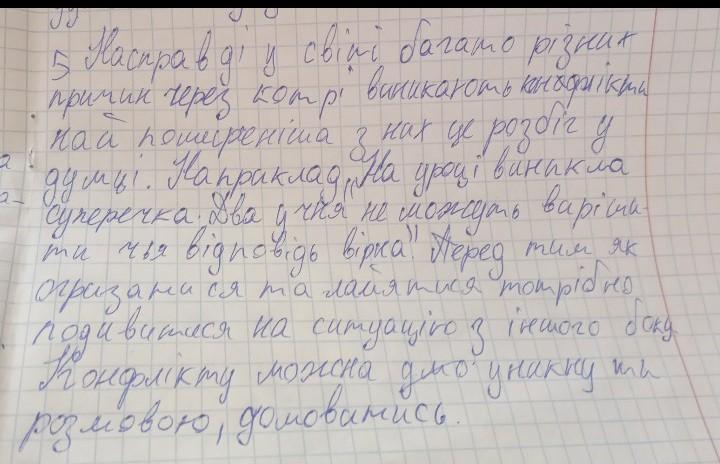 5 Насправді у світі багато різних
причин через котрі виникають конфлікти
най поширеніша з них це розбіг у
думці. Наприклад „На уроці виникла
суперечка. Два учня не можуть варіши-
ти чья відповідь вірна". Перед тим як
огризатися та лаятися потрібно
подивитися на ситуацію з іншого боку.
Конфлікту можна уникнути
розмовою, домовитись.